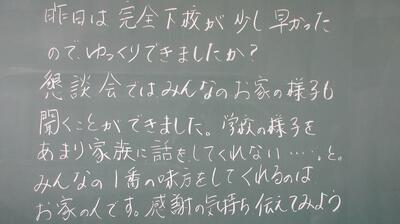 昨日は完全下校が少し早かった
ので、ゆっくりできましたか?
懇談会ではみんなのお家の様子も
聞くことができました。学校の様子を
あまり家族に話をしてくれない……。と。
みんなの1番の味方をしてくれるのは
お家の人です。感謝の気持ち伝えてみよう